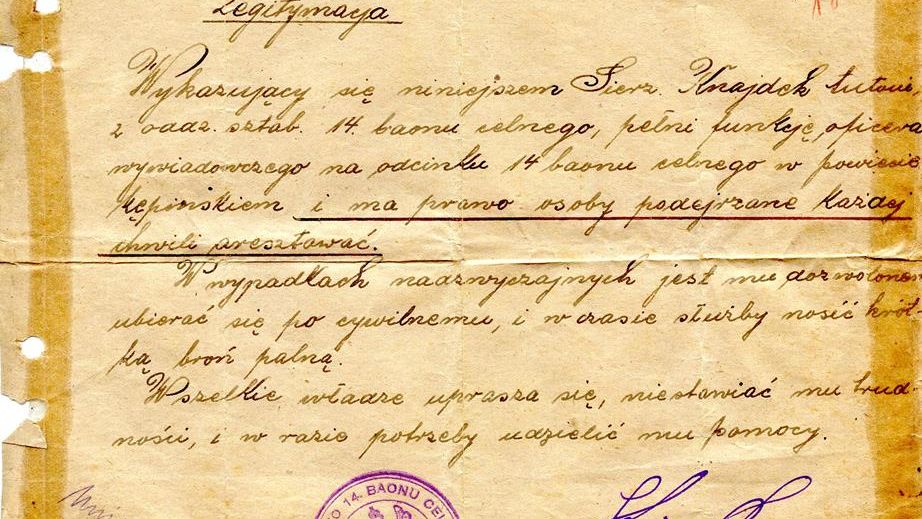 Legitymacja
Wykazujący się niniejszem Sierz. Knajdek Antoni,
z oddz. sztab. 14. baonu celnego, pełni funkcję oficera
wywiadowczego na odcinku 14 baonu celnego w powiecie
kępińskiem i ma prawo osoby podejrzane każdej
chwili aresztować.
W wypadkach nadzwyczajnych jest mu dozwolonem
ubierać się po cywilnemu, i w czasie służby nosić krót-
ką broń palną.
Wszelkie władze uprasza się, niestawiać mu trud-
ności, i w razie potrzeby udzielić mu pomocy.
O 14. BAONU CEL